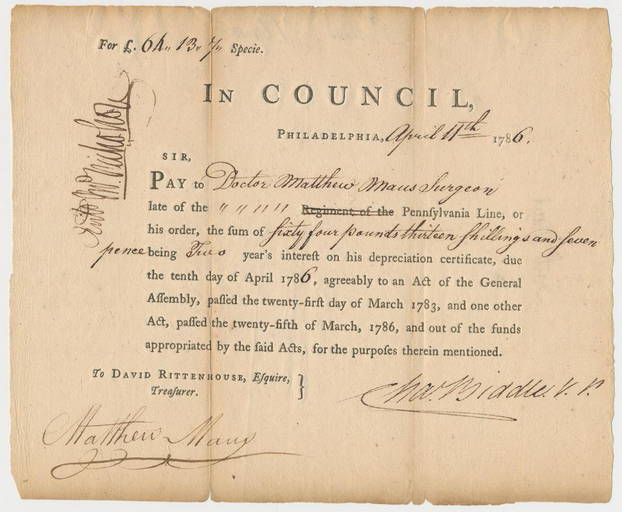 For £. 64,, 13,, 7,, Specie.
IN COUNCIL,
PHILADELPHIA, April 11th 1786.
SIR,
PAY to Doctor Matthew Maus Surgeon
late of the ,, ,, ,, ,, Regiment of the Pennſylvania Line, or
his order, the ſum of ſixty four pounds thirteen ſhillings and ſeven
pence being Two year's intereſt on his depreciation certificate, due
the tenth day of April 1786, agreeably to an Act of the General
Aſſembly, paſſed the twenty-firſt day of March 1783, and one other
Act, paſſed the twenty-fifth of March, 1786, and out of the funds
appropriated by the ſaid Acts, for the purpoſes therein mentioned.
To DAVID RITTENHOUSE, Eſquire,
Treaſurer.
Chas. Biddle. V. P.
Matthew Maus
Nicholson